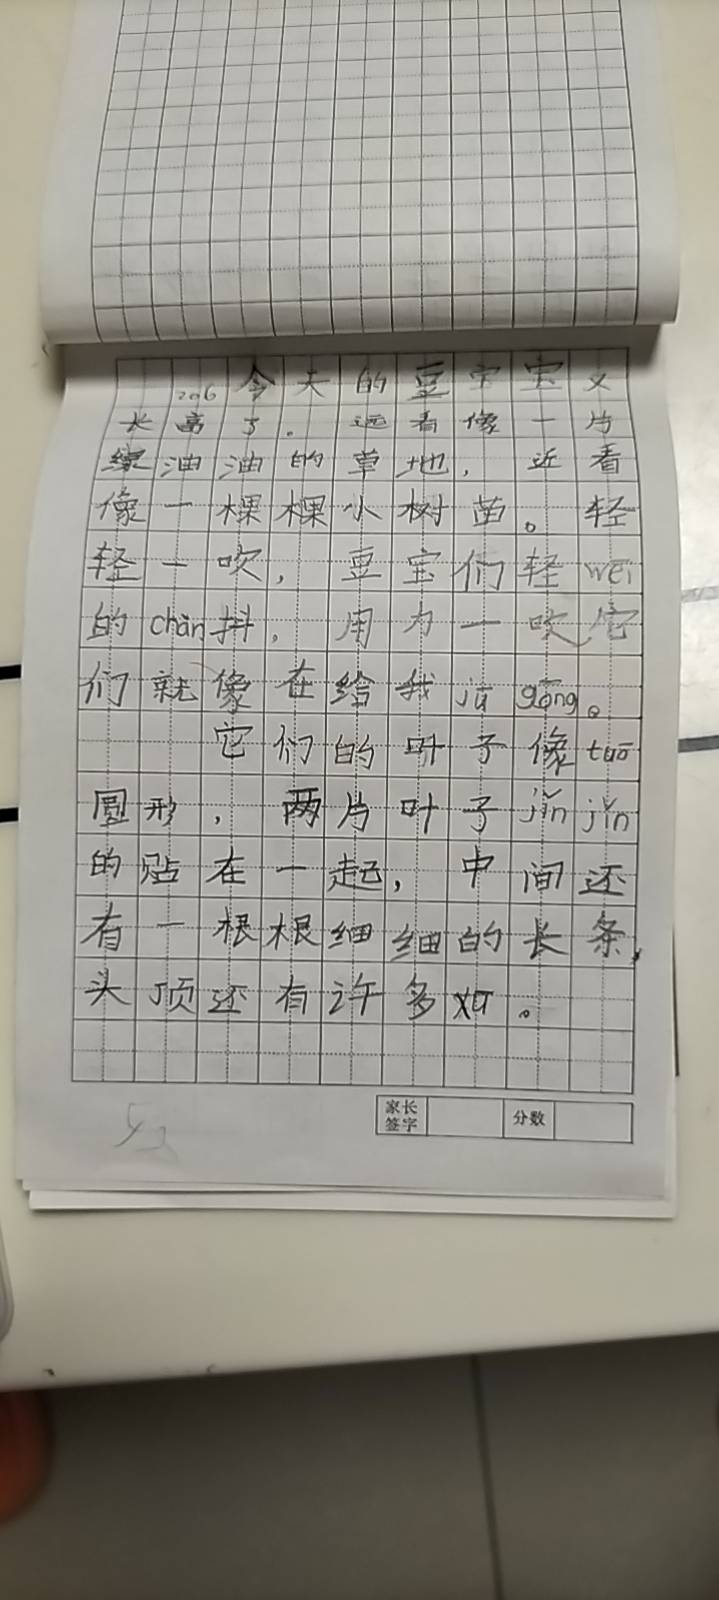 206今天的豆宝宝又
长高了。远看像一片
绿油油的草地，近看
像一棵棵小树苗。轻
轻一吹，豆宝们轻wēi
的chàn抖，用力一吹它
们就像在给我jū gōng。
它们的叶子像tuǒ
圆形，两片叶子jǐn jǐn
的贴在一起，中间还
有一根根细细的长条，
头顶还有许多xū。
家长
签字
分数